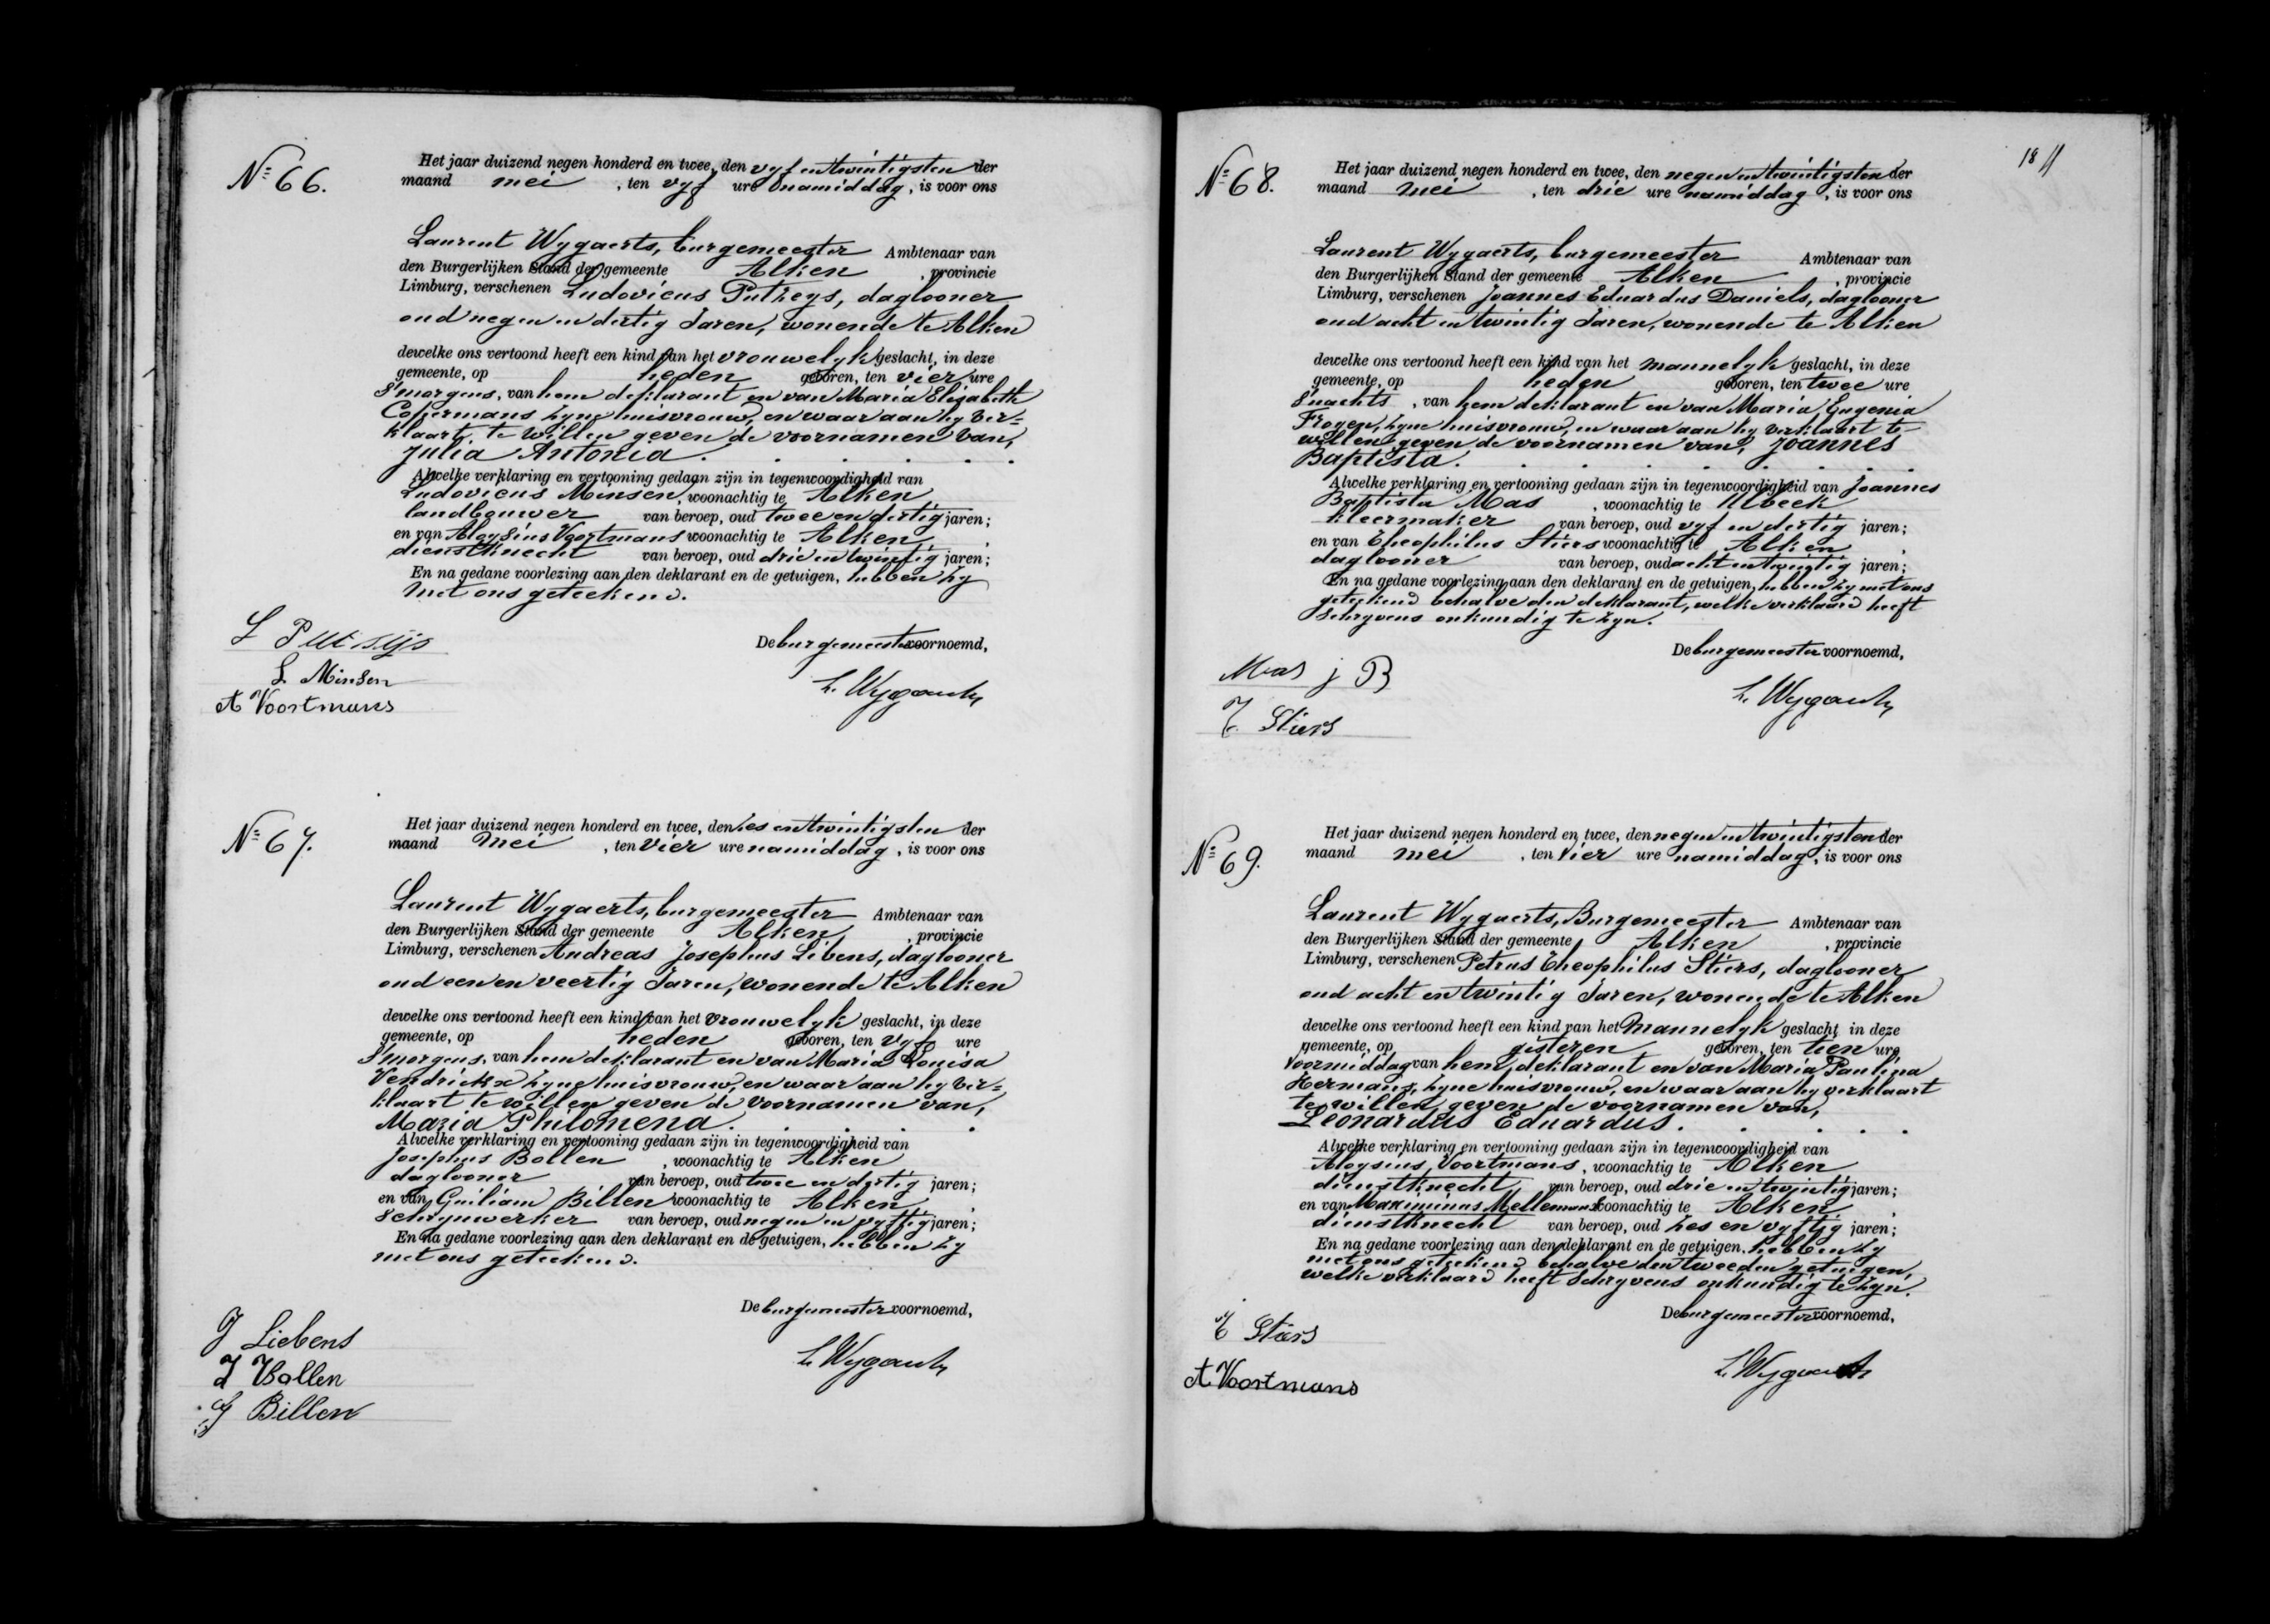 Nº 66.
Het jaar duizend negen honderd en twee, den vyf en twintigsten der
maand mei , ten vyf ure namiddag, is voor ons
Laurent Wygaerts, burgemeester Ambtenaar van
den Burgerlijken Stand der gemeente Alken , provincie
Limburg, verschenen Ludovicus Putzeys, daglooner
oud negen en dertig Jaren, wonende te Alken
dewelke ons vertoond heeft een kind van het vrouwelyk geslacht, in deze
gemeente, op heden geboren, ten vier ure
S'morgens, van hem deklarant en van Maria Elisabeth
Copermans zyne huisvrouw, en waar aan hy ver=
klaart, te willen geven de voornamen van,
Julia Antonia.
Alwelke verklaring en vertooning gedaan zijn in tegenwoordigheid van
Ludovicus Minsen, woonachtig te Alken
landbouwer van beroep, oud twee en dertig jaren;
en van Aloysius Voortmans woonachtig te Alken
dienstknecht van beroep, oud drie en twintig jaren;
En na gedane voorlezing aan den deklarant en de getuigen, hebben zy
met ons geteekend.
De burgemeester voornoemd,
L Putseys
L. Minsen
A Voortmans
L. Wygaerts
Nº 67.
Het jaar duizend negen honderd en twee, den zes en twintigsten der
maand Mei , ten Vier ure namiddag, is voor ons
Laurent Wygaerts, burgemeester Ambtenaar van
den Burgerlijken Stand der gemeente Alken , provincie
Limburg, verschenen Andreas Josephus Libens, daglooner
oud een en veertig Jaren, wonende te Alken
dewelke ons vertoond heeft een kind van het vrouwelyk geslacht, in deze
gemeente, op heden geboren, ten vyf ure
S'morgens, van hem deklarant en van Maria Louisa
Vendrickx zyne huisvrouw, en waar aan hy ver=
klaart te willen geven de voornamen van,
Maria Philomena.
Alwelke verklaring en vertooning gedaan zijn in tegenwoordigheid van
Josephus Bollen , woonachtig te Alken
daglooner van beroep, oud twee en dertig jaren;
en van Guiliam Billen woonachtig te Alken
Schrynwerker van beroep, oud negen en vyftig jaren;
En na gedane voorlezing aan den deklarant en de getuigen, hebben zy
met ons geteekend.
De burgemeester voornoemd,
J Liebens
J Bollen
G Billen
L. Wygaerts
18
Nº 68.
Het jaar duizend negen honderd en twee, den negen en twintigsten der
maand Mei , ten drie ure namiddag, is voor ons
Laurent Wygaerts, burgemeester Ambtenaar van
den Burgerlijken Stand der gemeente Alken , provincie
Limburg, verschenen Joannes Eduardus Daniels, daglooner
oud acht en twintig Jaren, wonende te Alken
dewelke ons vertoond heeft een kind van het mannelyk geslacht, in deze
gemeente, op heden geboren, ten twee ure
S'nachts , van hem deklarant en van Maria Eugenia
Froyen, zyne huisvrouw, en waar aan hy verklaart te
willen geven de voornamen van, Joannes
Baptista.
Alwelke verklaring en vertooning gedaan zijn in tegenwoordigheid van Joannes
Baptista Mas , woonachtig te Ulbeek
kleermaker van beroep, oud vyf en dertig jaren;
en van Theophilus Stiers woonachtig te Alken
daglooner van beroep, oud acht en twintig jaren;
En na gedane voorlezing aan den deklarant en de getuigen, hebben zy met ons
geteekend behalve den deklarant, welke verklaard heeft
Schryvens onkundig te zyn.
De burgemeester voornoemd,
Mas j B
T. Stiers
L. Wygaerts
Nº 69.
Het jaar duizend negen honderd en twee, den negen en twintigsten der
maand mei , ten Vier ure namiddag, is voor ons
Laurent Wygaerts, Burgemeester Ambtenaar van
den Burgerlijken Stand der gemeente Alken , provincie
Limburg, verschenen Petrus Theophilus Stiers, daglooner
oud acht en twintig Jaren, wonende te Alken
dewelke ons vertoond heeft een kind van het Mannelyk geslacht in deze
gemeente, op gisteren geboren, ten tien ure
Voormiddag van hem deklarant en van Maria Paulina
Hermans, zyne huisvrouw, en waar aan hy verklaart
te willen geven de voornamen van,
Leonardus Eduardus.
Alwelke verklaring en vertooning gedaan zijn in tegenwoordigheid van
Aloysius Voortmans, woonachtig te Alken
dienstknecht van beroep, oud drie en twintig jaren;
en van Maximinus Mellemans woonachtig te Alken
dienstknecht van beroep, oud zes en vyftig jaren;
En na gedane voorlezing aan den deklarant en de getuigen, hebben zy
met ons geteekend behalve den tweeden getuigen,
welke verklaard heeft Schryvens onkundig te zyn.
De burgemeester voornoemd,
T Stiers
A. Voortmans
L. Wygaerts